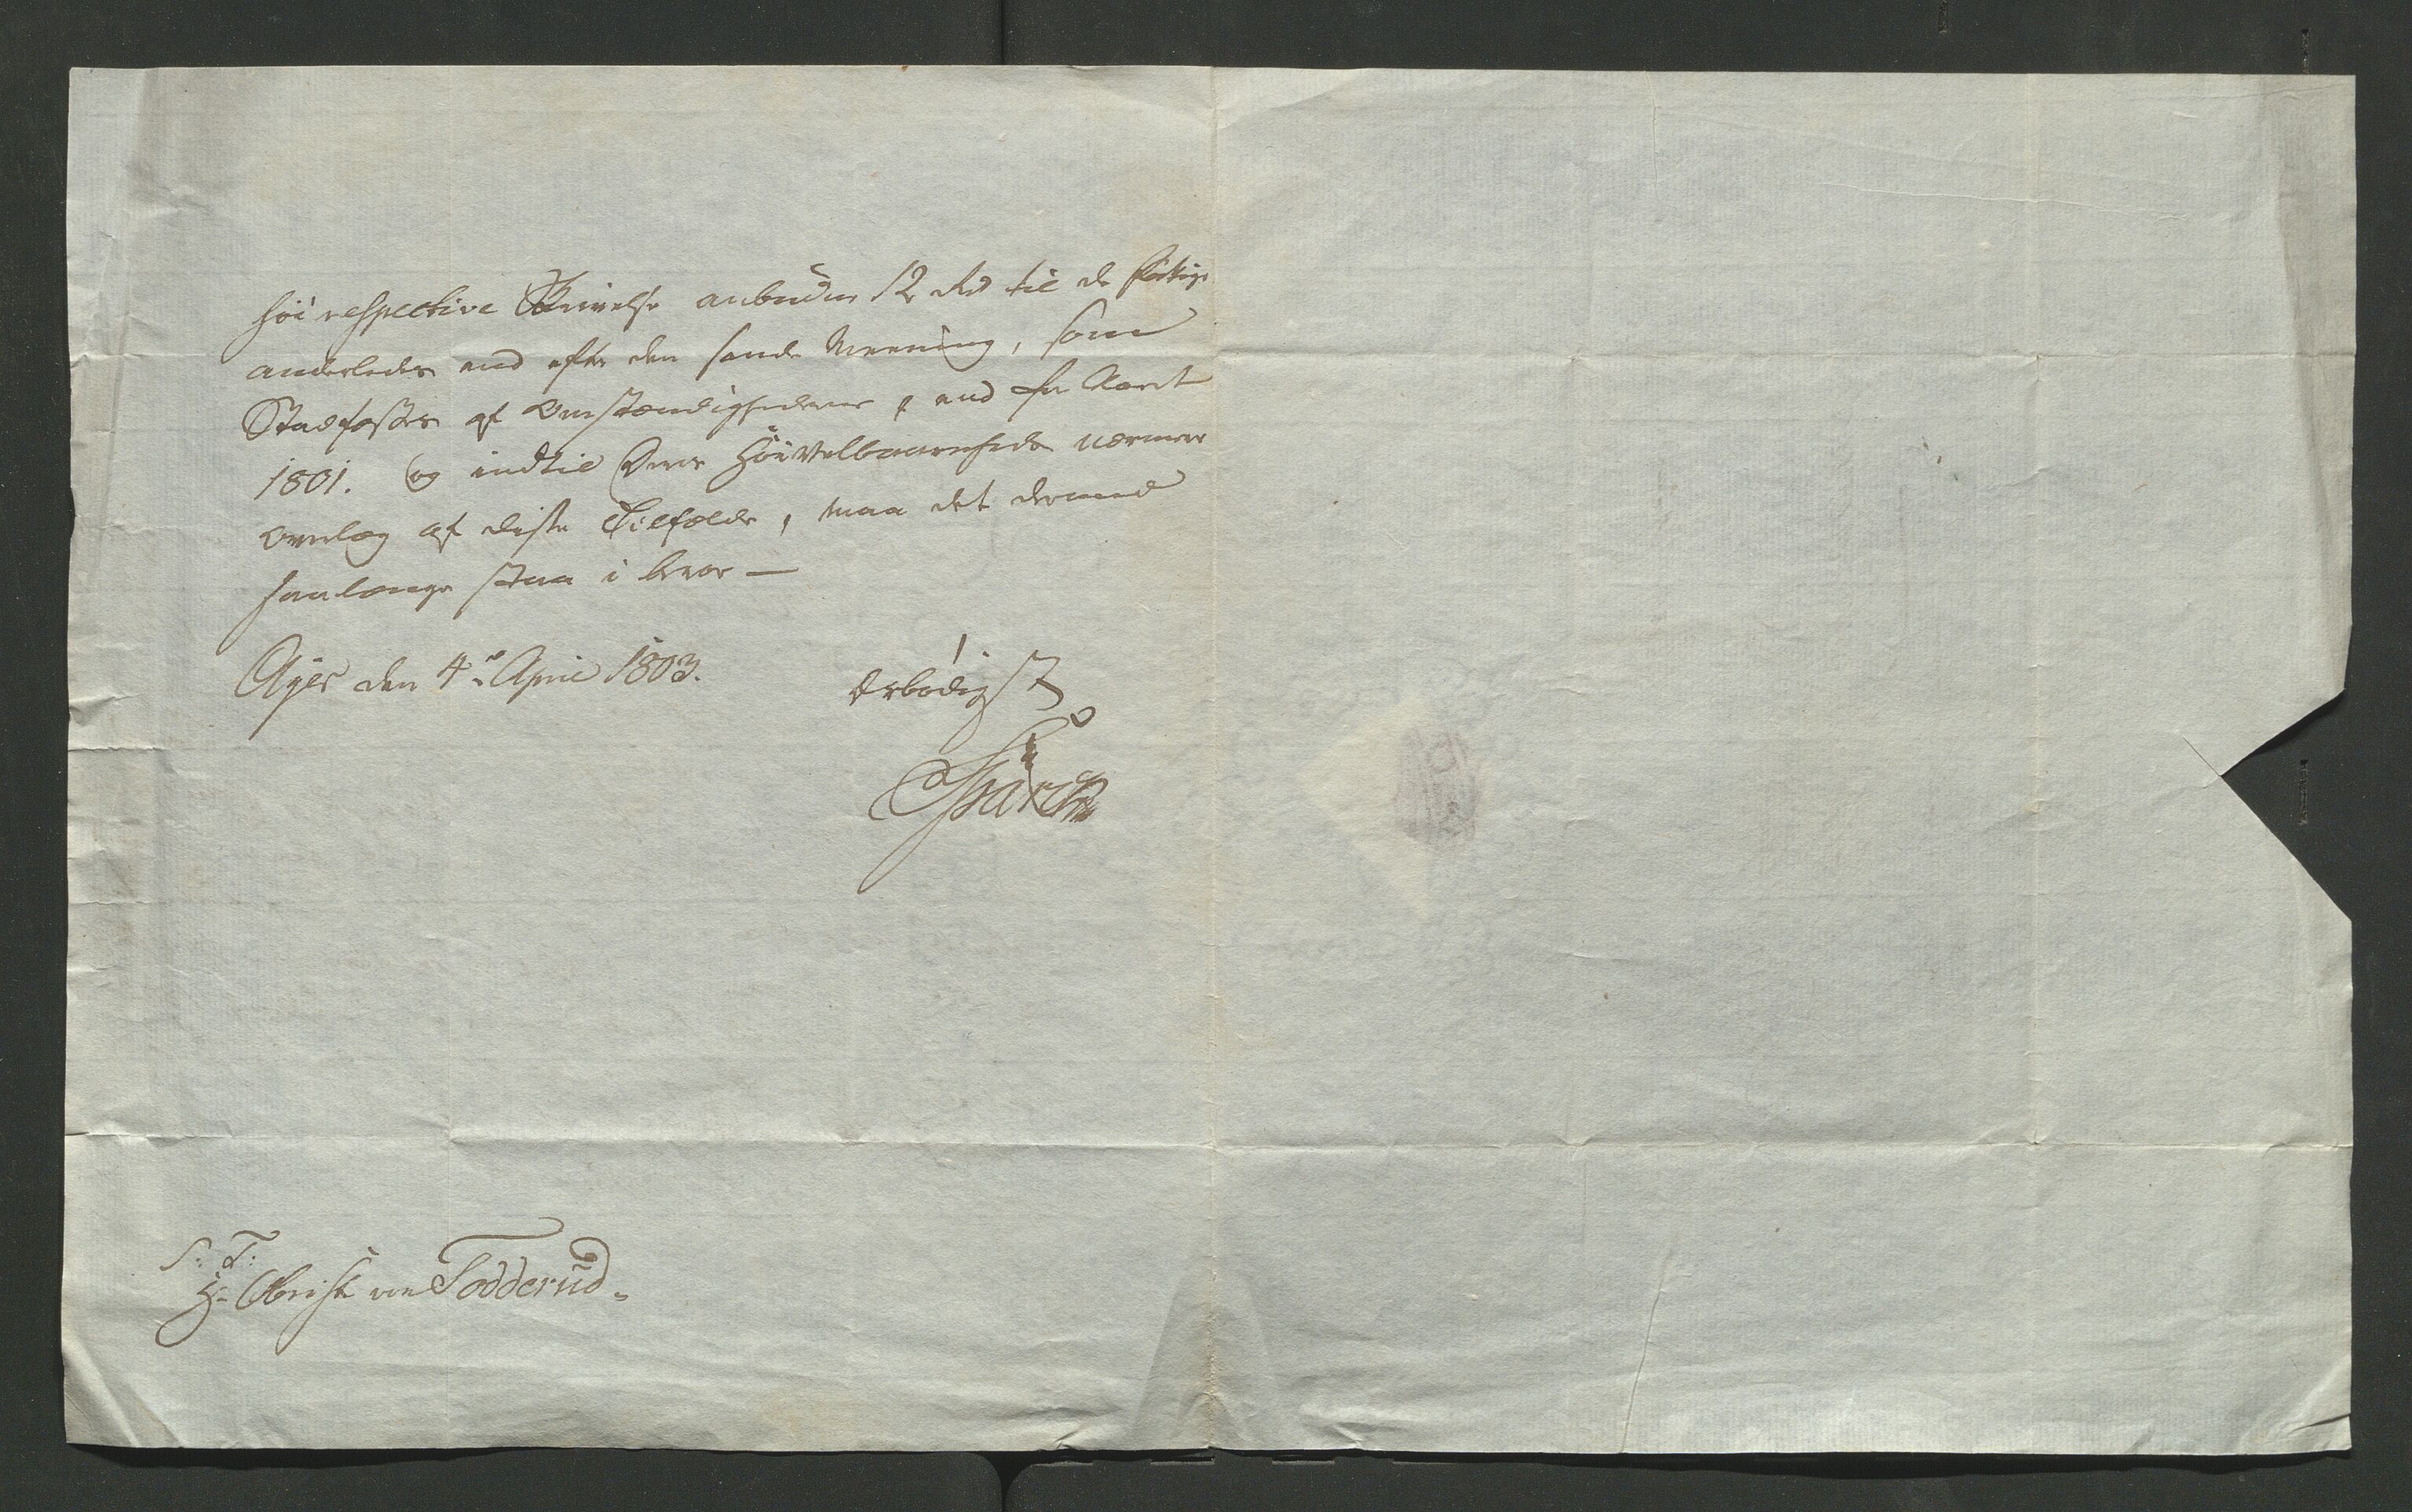 höi respective Skrivelse anbudne 12 rd til de fattige
anderledes end efter den sande Meening, som
Stadfæstes af Omstændighederne, end for Aaret
1801. og indtil Deres Höivelbaarenheds nærmere
Overlæg af disse Tilfælde, maa det dermed
saalænge staa i beroe —
Ager den 4de April 1803.
ærbödigst
S: T:
Hr Obriste von Todderud.